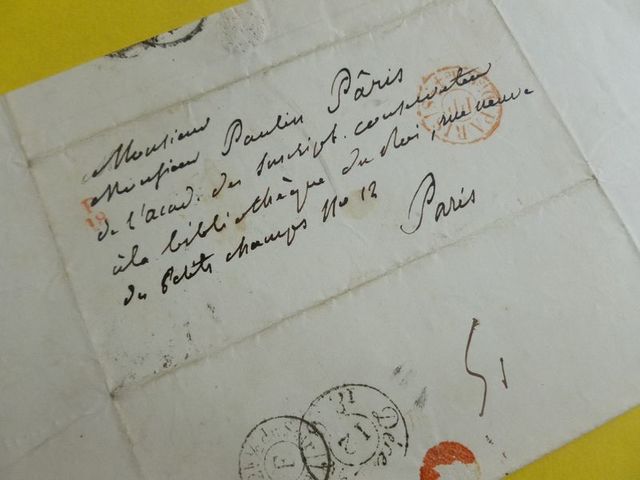 Monsieur
Monsieur Paulin Pâris
de l'acad. des Inscript. conservateur
à la bibliothèque du Roi, rue neuve
des Petits champs No 12
Paris
PARIS
Déce